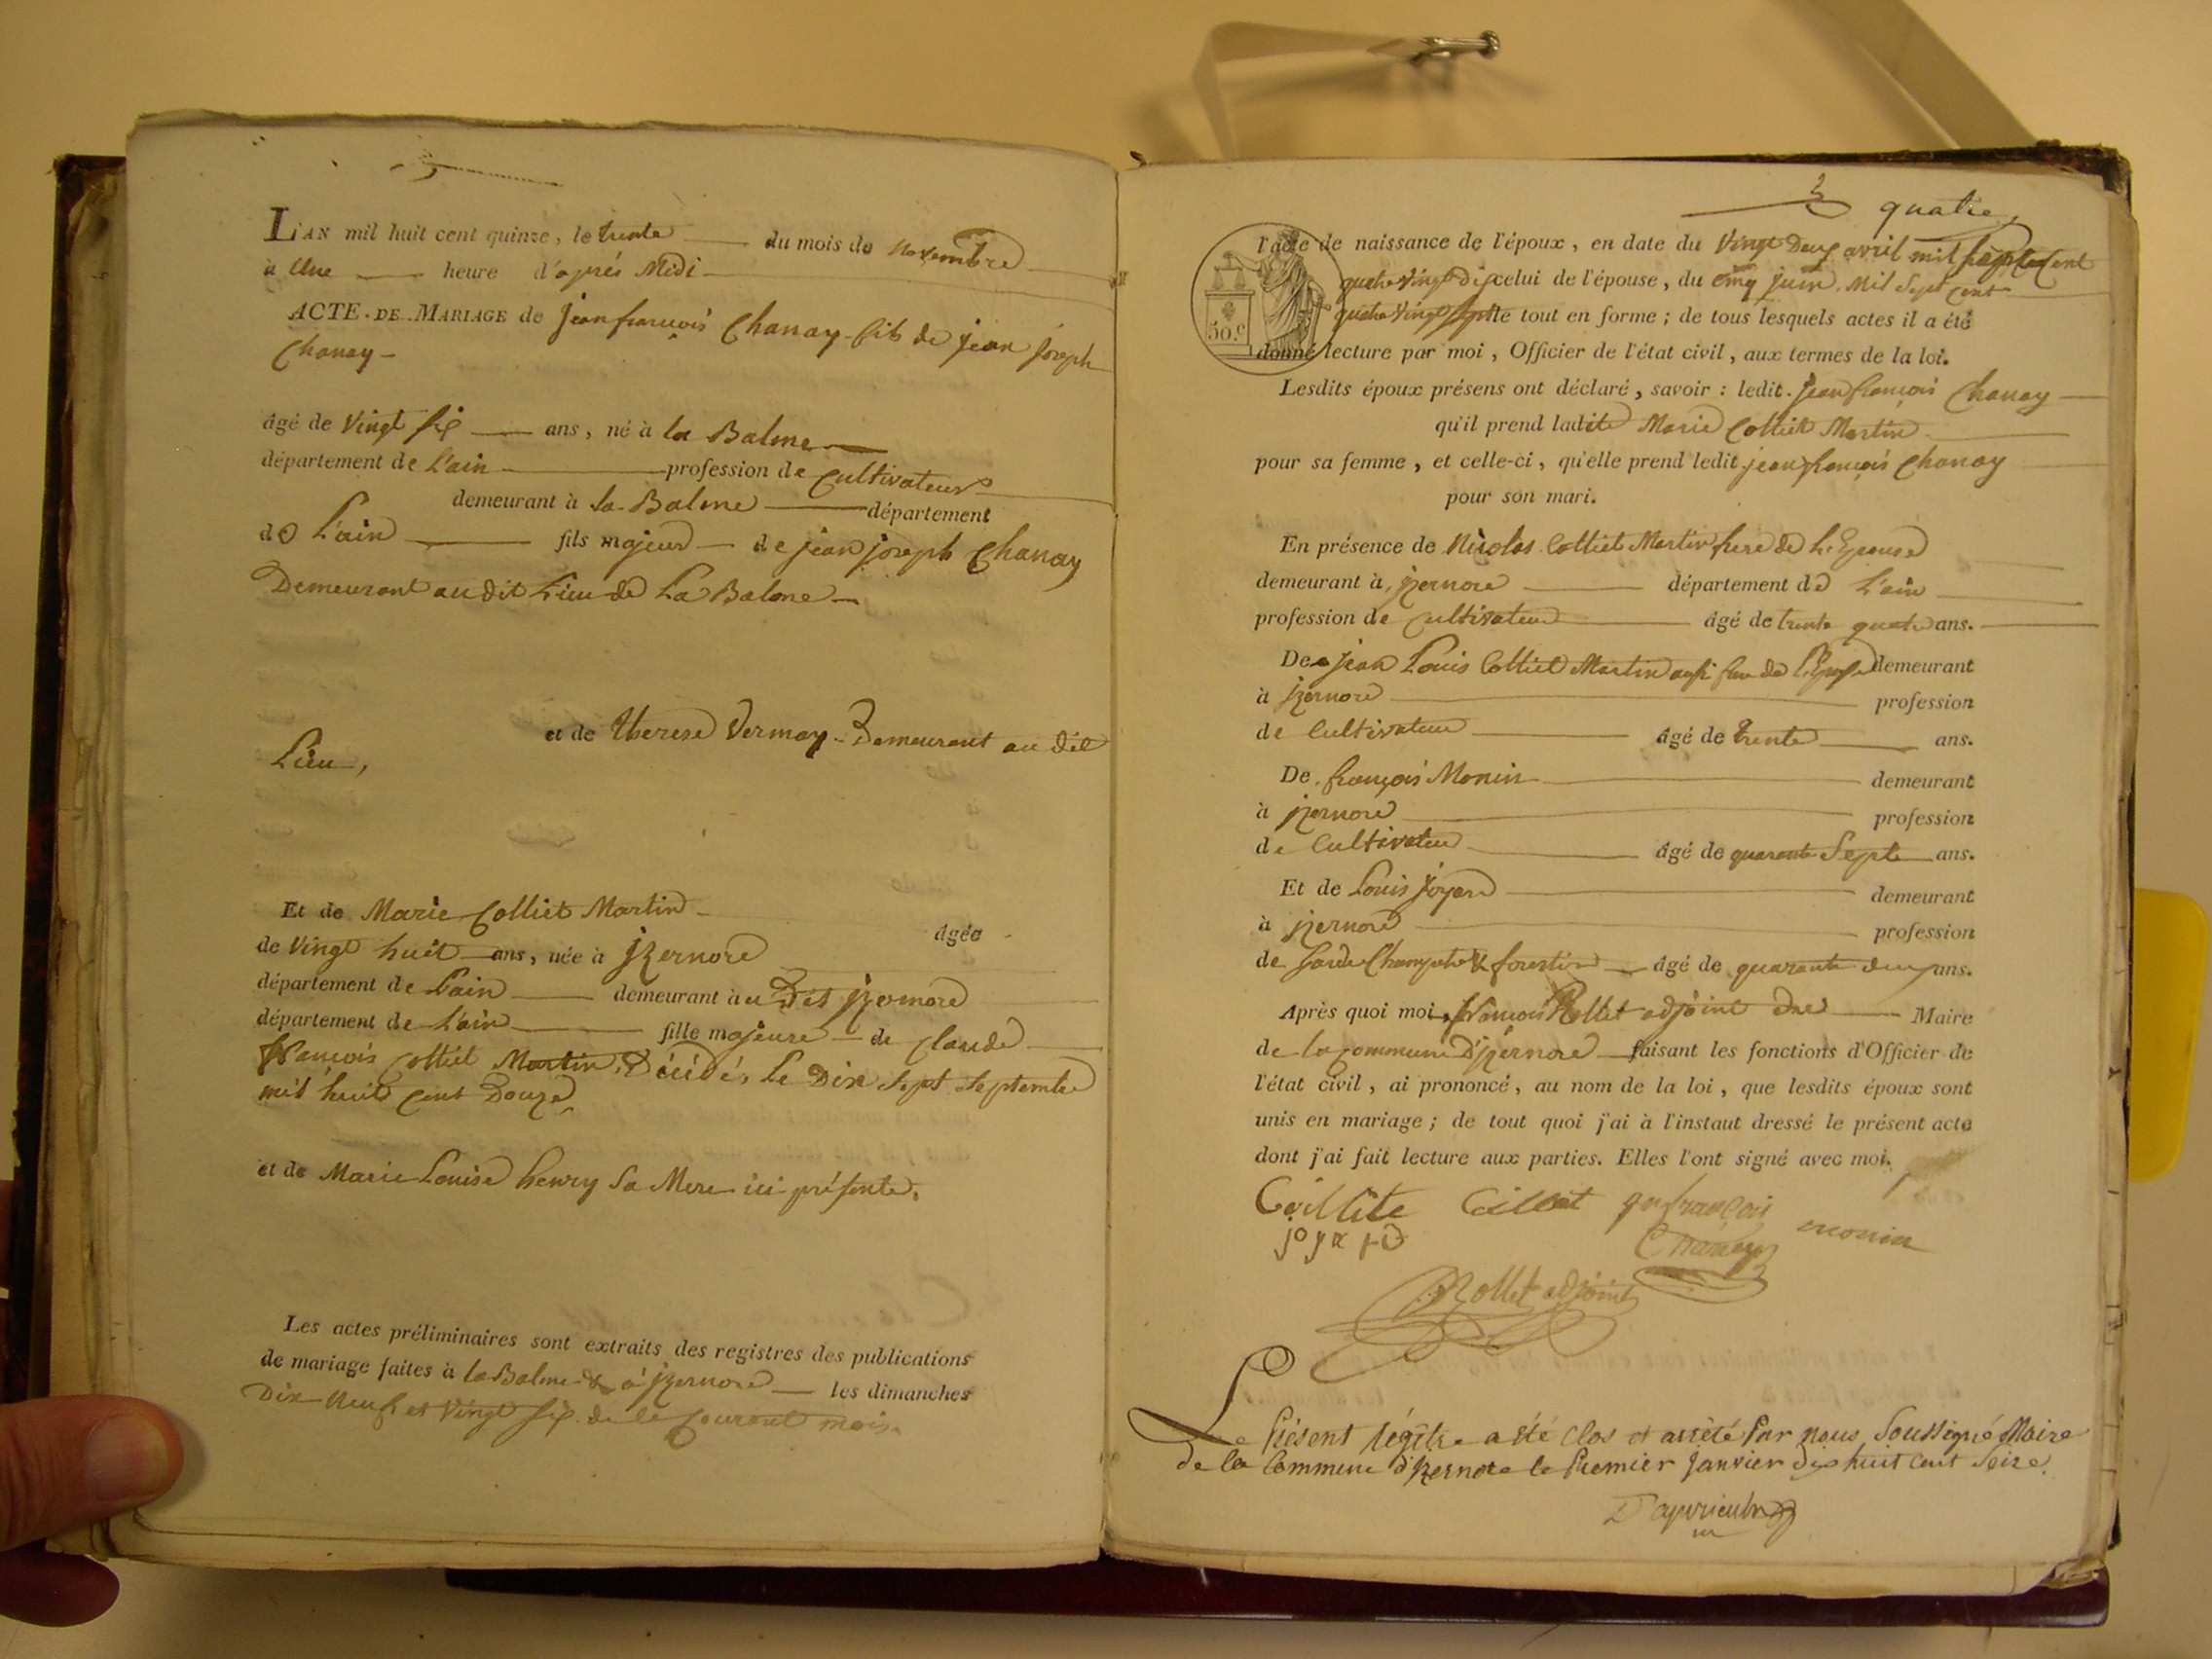 L'AN mil huit cent quinze, le trente du mois de novembre
à Une heure d'après Midi
ACTE DE MARIAGE de jean françois Chanay fils de jean joseph
Chanay
âgé de Vingt six ans, né à la Balme
département de L'ain profession de Cultivateur
demeurant à la Balme département
de L'ain fils majeur de jean joseph Chanay
Demeurant au dit Lieu de La Balme
et de therese Vermay Demeurant au dit
Lieu,
Et de Marie Colliet Martin âgée
de Vingt huit ans, née à jzernore
département de L'ain demeurant à au Dit jzernore
département de L'ain fille majeure de Claude
françois Colliet Martin, Décédé, le Dix sept septembre
mil huit cent Douze
et de Marie Louise henry sa Mere ici présente,
Les actes préliminaires sont extraits des registres des publications
de mariage faites à la Balme & à jzernore les dimanches
Dix neuf et Vingt six de le Courant mois.
3 quatre
l'acte de naissance de l'époux, en date du Vingt Deux avril mil sept Cent
quatre Vingt Dix celui de l'épouse, du cinq juin Mil Sept Cent
quatre Vingt Sept le tout en forme ; de tous lesquels actes il a été
50.c
donné lecture par moi, Officier de l'état civil, aux termes de la loi.
Lesdits époux présens ont déclaré, savoir : ledit jean françois Chanay
qu'il prend ladite Marie Colliet Martin
pour sa femme, et celle-ci, qu'elle prend ledit jean françois Chanay
pour son mari.
En présence de Nicolas Colliet Martin frere de L'Epouse
demeurant à jzernore département de L'ain
profession de Cultivateur âgé de trente quatre ans.
De jean Louis Colliet Martin aussi frere de L'Epouse demeurant
à jzernore profession
de Cultivateur âgé de trente ans.
De françois Monin demeurant
à jzernore profession
de Cultivateur âgé de quarante Sept ans.
Et de Louis joyard demeurant
à jzernore profession
de Garde Champetre & forestier âgé de quarante deux ans.
Après quoi moi, françois Rollet adjoint du Maire
de la commune D'jzernore faisant les fonctions d'Officier de
l'état civil, ai prononcé, au nom de la loi, que lesdits époux sont
unis en mariage ; de tout quoi j'ai à l'instant dressé le présent acte
dont j'ai fait lecture aux parties. Elles l'ont signé avec moi.
françois monin
Chanay
Rollet adjoint
Le Présent régistre a été Clos et arrêté Par nous Soussigné Maire
de la Commune d'jzernore le Premier Janvier dix huit cent Seize.